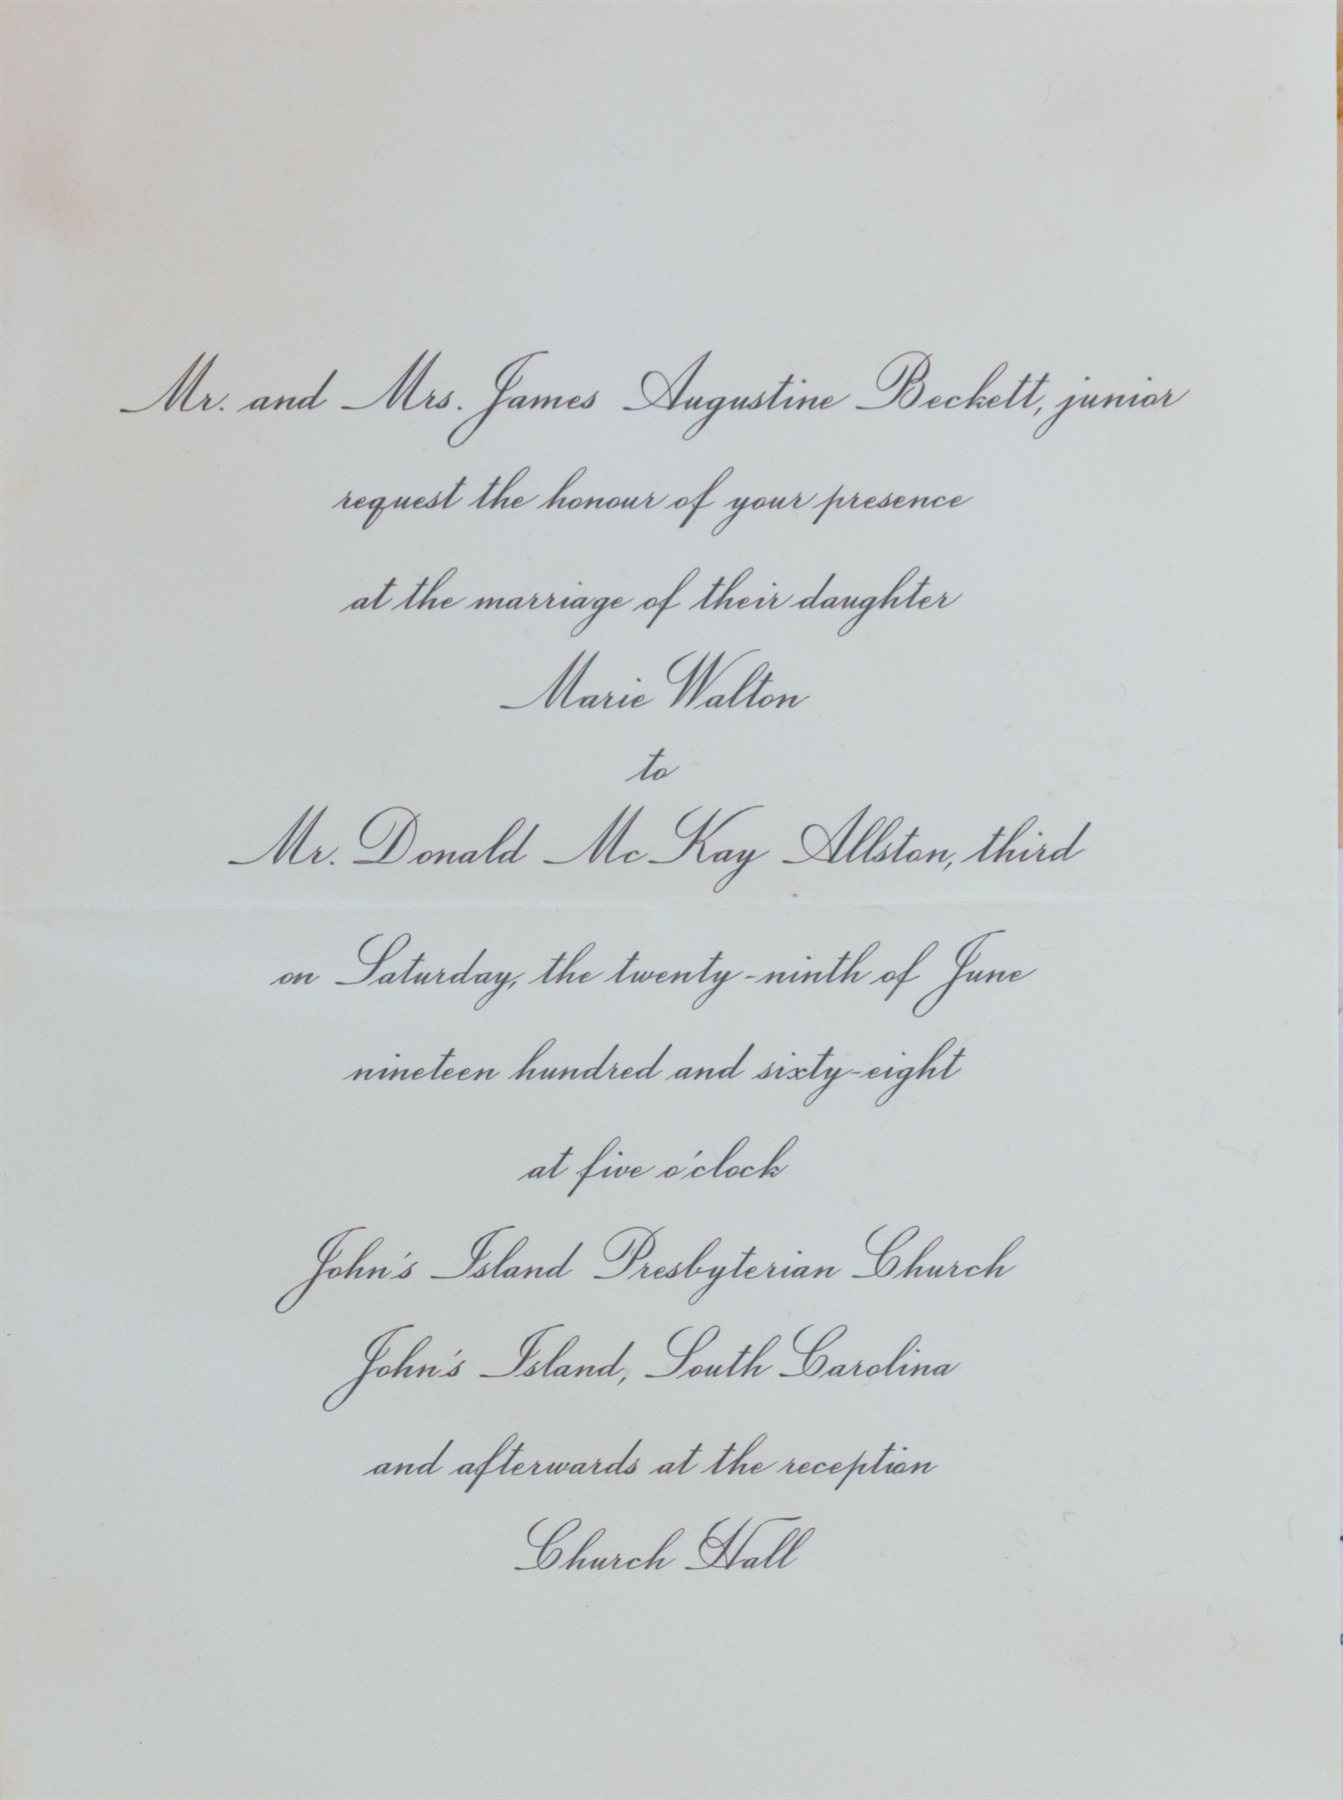 Mr. and Mrs. James Augustine Beckett, junior
request the honour of your presence
at the marriage of their daughter
Marie Walton
to
Mr. Donald McKay Allston, third
on Saturday, the twenty-ninth of June
nineteen hundred and sixty-eight
at five o'clock
John's Island Presbyterian Church
John's Island, South Carolina
and afterwards at the reception
Church Hall